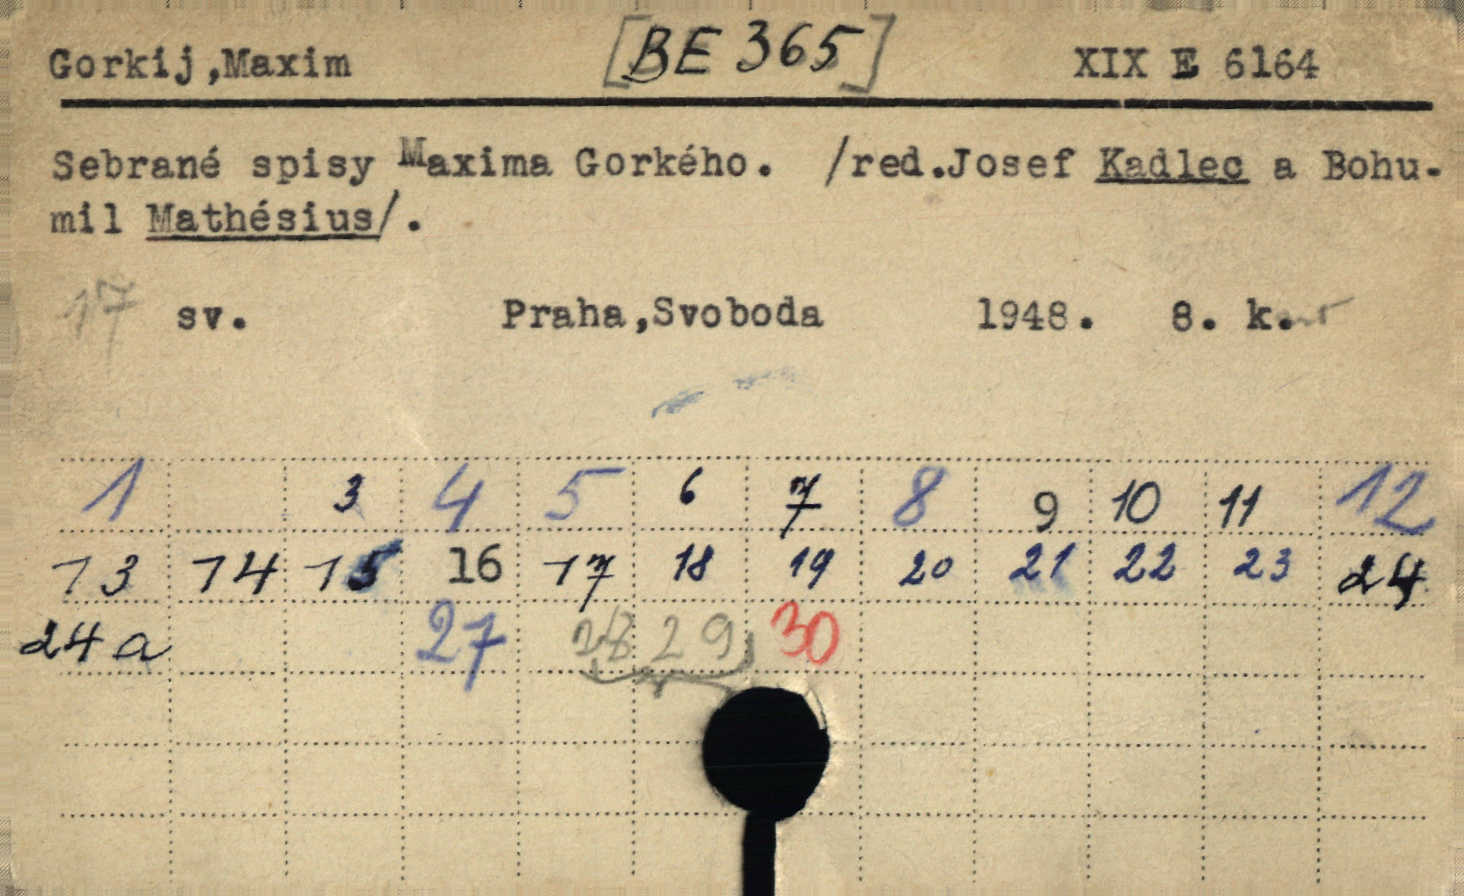 Gorkij,Maxim [BE 365] XIX E 6164
Sebrané spisy Maxima Gorkého. /red.Josef Kadlec a Bohu-
mil Mathésius/.
17 sv. Praha,Svoboda 1948. 8. k.
1 3 4 5 6 7 8 9 10 11 12
13 14 15 16 17 18 19 20 21 22 23 24
24a 27 28 29 30